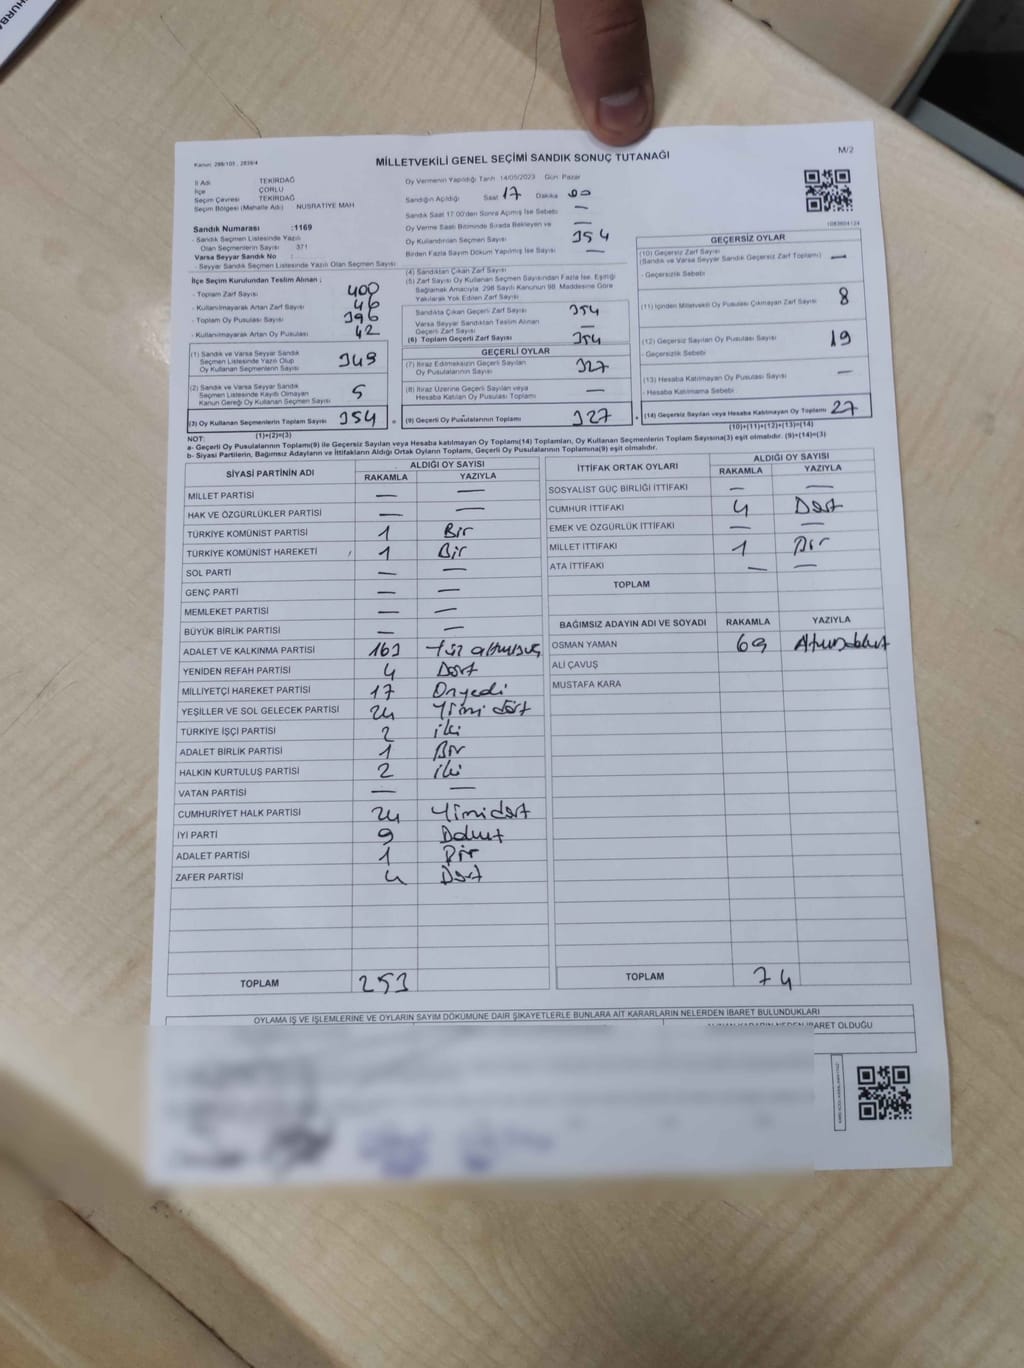 HURBA
Kanun: 298/103 , 2839/4
MİLLETVEKİLİ GENEL SEÇİMİ SANDIK SONUÇ TUTANAĞI
M/2
İl Adı TEKİRDAĞ
İlçe ÇORLU
Seçim Çevresi TEKİRDAĞ
Seçim Bölgesi (Mahalle Adı) NUSRATİYE MAH
Sandık Numarası :1169
- Sandık Seçmen Listesinde Yazılı
Olan Seçmenlerin Sayısı 371
Varsa Seyyar Sandık No
- Seyyar Sandık Seçmen Listesinde Yazılı Olan Seçmen Sayısı
Oy Vermenin Yapıldığı Tarih 14/05/2023 Gün Pazar
Sandığın Açıldığı Saat 17 Dakika 00
Sandık Saat 17:00'den Sonra Açılmış İse Sebebi —
Oy Verme Saati Bitiminde Sırada Bekleyen ve —
Oy Kullandırılan Seçmen Sayısı 354
Birden Fazla Sayım Döküm Yapılmış İse Sayısı —
1083604124
İlçe Seçim Kurulundan Teslim Alınan ;
- Toplam Zarf Sayısı 400
- Kullanılmayarak Artan Zarf Sayısı 46
- Toplam Oy Pusulası Sayısı 396
- Kullanılmayarak Artan Oy Pusulası 42
(1) Sandık ve Varsa Seyyar Sandık
Seçmen Listesinde Yazılı Olup
Oy Kullanan Seçmenlerin Sayısı 349
(2) Sandık ve Varsa Seyyar Sandık
Seçmen Listesinde Kayıtlı Olmayan
Kanun Gereği Oy Kullanan Seçmen Sayısı 5
(3) Oy Kullanan Seçmenlerin Toplam Sayısı 354
(1)+(2)=(3)
(4) Sandıktan Çıkan Zarf Sayısı
(5) Zarf Sayısı Oy Kullanan Seçmen Sayısından Fazla İse, Eşitliği
Sağlamak Amacıyla, 298 Sayılı Kanunun 98. Maddesine Göre
Yakılarak Yok Edilen Zarf Sayısı
Sandıkta Çıkan Geçerli Zarf Sayısı 354
Varsa Seyyar Sandıktan Teslim Alınan
Geçerli Zarf Sayısı —
(6) Toplam Geçerli Zarf Sayısı 354
GEÇERLİ OYLAR
(7) İtiraz Edilmeksizin Geçerli Sayılan
Oy Pusulalarının Sayısı 327
(8) İtiraz Üzerine Geçerli Sayılan veya
Hesaba Katılan Oy Pusulası Toplamı —
(9) Geçerli Oy Pusulalarının Toplamı 327
GEÇERSİZ OYLAR
(10) Geçersiz Zarf Sayısı
(Sandık ve Varsa Seyyar Sandık Geçersiz Zarf Toplamı) —
- Geçersizlik Sebebi
(11) İçinden Milletvekili Oy Pusulası Çıkmayan Zarf Sayısı 8
(12) Geçersiz Sayılan Oy Pusulası Sayısı 19
- Geçersizlik Sebebi
(13) Hesaba Katılmayan Oy Pusulası Sayısı —
- Hesaba Katılmama Sebebi
(14) Geçersiz Sayılan veya Hesaba Katılmayan Oy Toplamı 27
(10)+(11)+(12)+(13)=(14)
NOT:
a- Geçerli Oy Pusulalarının Toplamı(9) ile Geçersiz Sayılan veya Hesaba katılmayan Oy Toplamı(14) Toplamları, Oy Kullanan Seçmenlerin Toplam Sayısına(3) eşit olmalıdır. (9)+(14)=(3)
b- Siyasi Partilerin, Bağımsız Adayların ve İttifakların Aldığı Ortak Oyların Toplamı, Geçerli Oy Pusulalarının Toplamına(9) eşit olmalıdır.
SİYASİ PARTİNİN ADI ALDIĞI OY SAYISI
RAKAMLA YAZIYLA
MİLLET PARTİSİ — —
HAK VE ÖZGÜRLÜKLER PARTİSİ — —
TÜRKİYE KOMÜNİST PARTİSİ 1 Bir
TÜRKİYE KOMÜNİST HAREKETİ 1 Bir
SOL PARTİ — —
GENÇ PARTİ — —
MEMLEKET PARTİSİ — —
BÜYÜK BİRLİK PARTİSİ — —
ADALET VE KALKINMA PARTİSİ 163 Yüz altmışüç
YENİDEN REFAH PARTİSİ 4 Dört
MİLLİYETÇİ HAREKET PARTİSİ 17 Onyedi
YEŞİLLER VE SOL GELECEK PARTİSİ 24 Yirmi dört
TÜRKİYE İŞÇİ PARTİSİ 2 iki
ADALET BİRLİK PARTİSİ 1 Bir
HALKIN KURTULUŞ PARTİSİ 2 iki
VATAN PARTİSİ — —
CUMHURİYET HALK PARTİSİ 24 Yirmidört
İYİ PARTİ 9 Dokuz
ADALET PARTİSİ 1 Bir
ZAFER PARTİSİ 4 Dört
TOPLAM 253
İTTİFAK ORTAK OYLARI ALDIĞI OY SAYISI
RAKAMLA YAZIYLA
SOSYALİST GÜÇ BİRLİĞİ İTTİFAKI — —
CUMHUR İTTİFAKI 4 Dört
EMEK VE ÖZGÜRLÜK İTTİFAKI — —
MİLLET İTTİFAKI 1 Bir
ATA İTTİFAKI — —
TOPLAM
BAĞIMSIZ ADAYIN ADI VE SOYADI RAKAMLA YAZIYLA
OSMAN YAMAN 69 Altmışdokuz
ALİ ÇAVUŞ
MUSTAFA KARA
TOPLAM 74
OYLAMA İŞ VE İŞLEMLERİNE VE OYLARIN SAYIM DÖKÜMÜNE DAİR ŞİKAYETLERLE BUNLARA AİT KARARLARIN NELERDEN İBARET BULUNDUKLARI
İBARET OLDUĞU